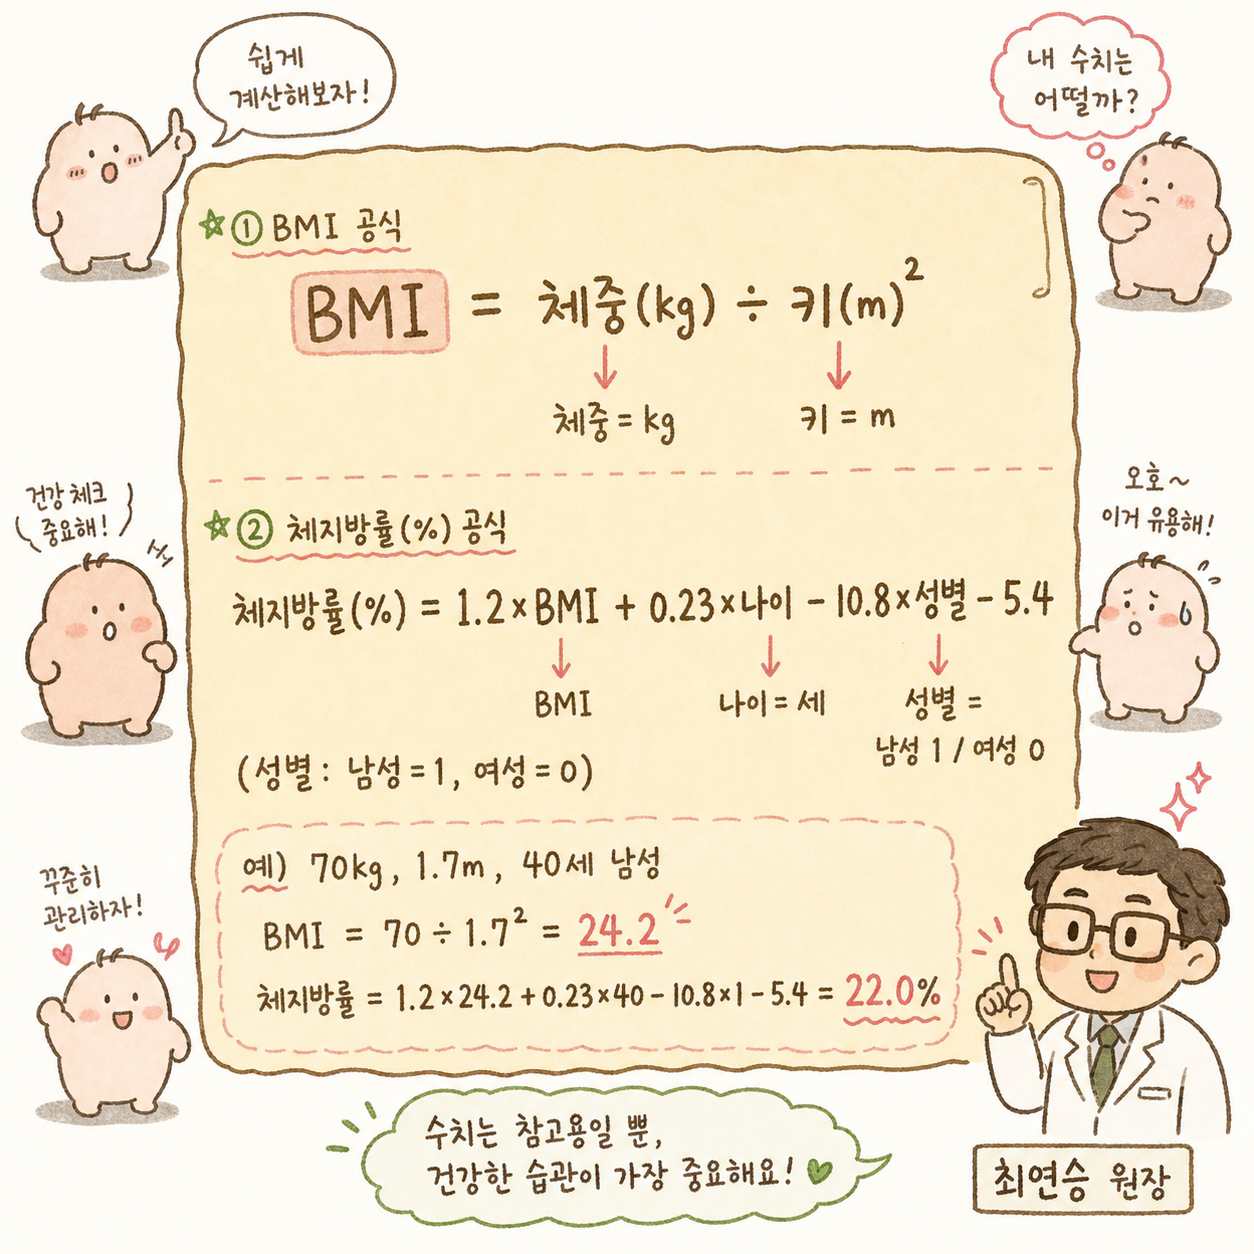 쉽게
계산해보자!
내 수치는
어떨까?
① BMI 공식
BMI = 체중(kg) ÷ 키(m)²
체중 = kg
키 = m
건강 체크
중요해!
오호~
이거 유용해!
② 체지방률(%) 공식
체지방률(%) = 1.2×BMI + 0.23×나이 - 10.8×성별 - 5.4
BMI
나이 = 세
성별 =
남성 1 / 여성 0
(성별: 남성=1, 여성=0)
예) 70kg, 1.7m, 40세 남성
BMI = 70 ÷ 1.7² = 24.2
체지방률 = 1.2×24.2 + 0.23×40 - 10.8×1 - 5.4 = 22.0%
꾸준히
관리하자!
수치는 참고용일 뿐,
건강한 습관이 가장 중요해요!
최연승 원장